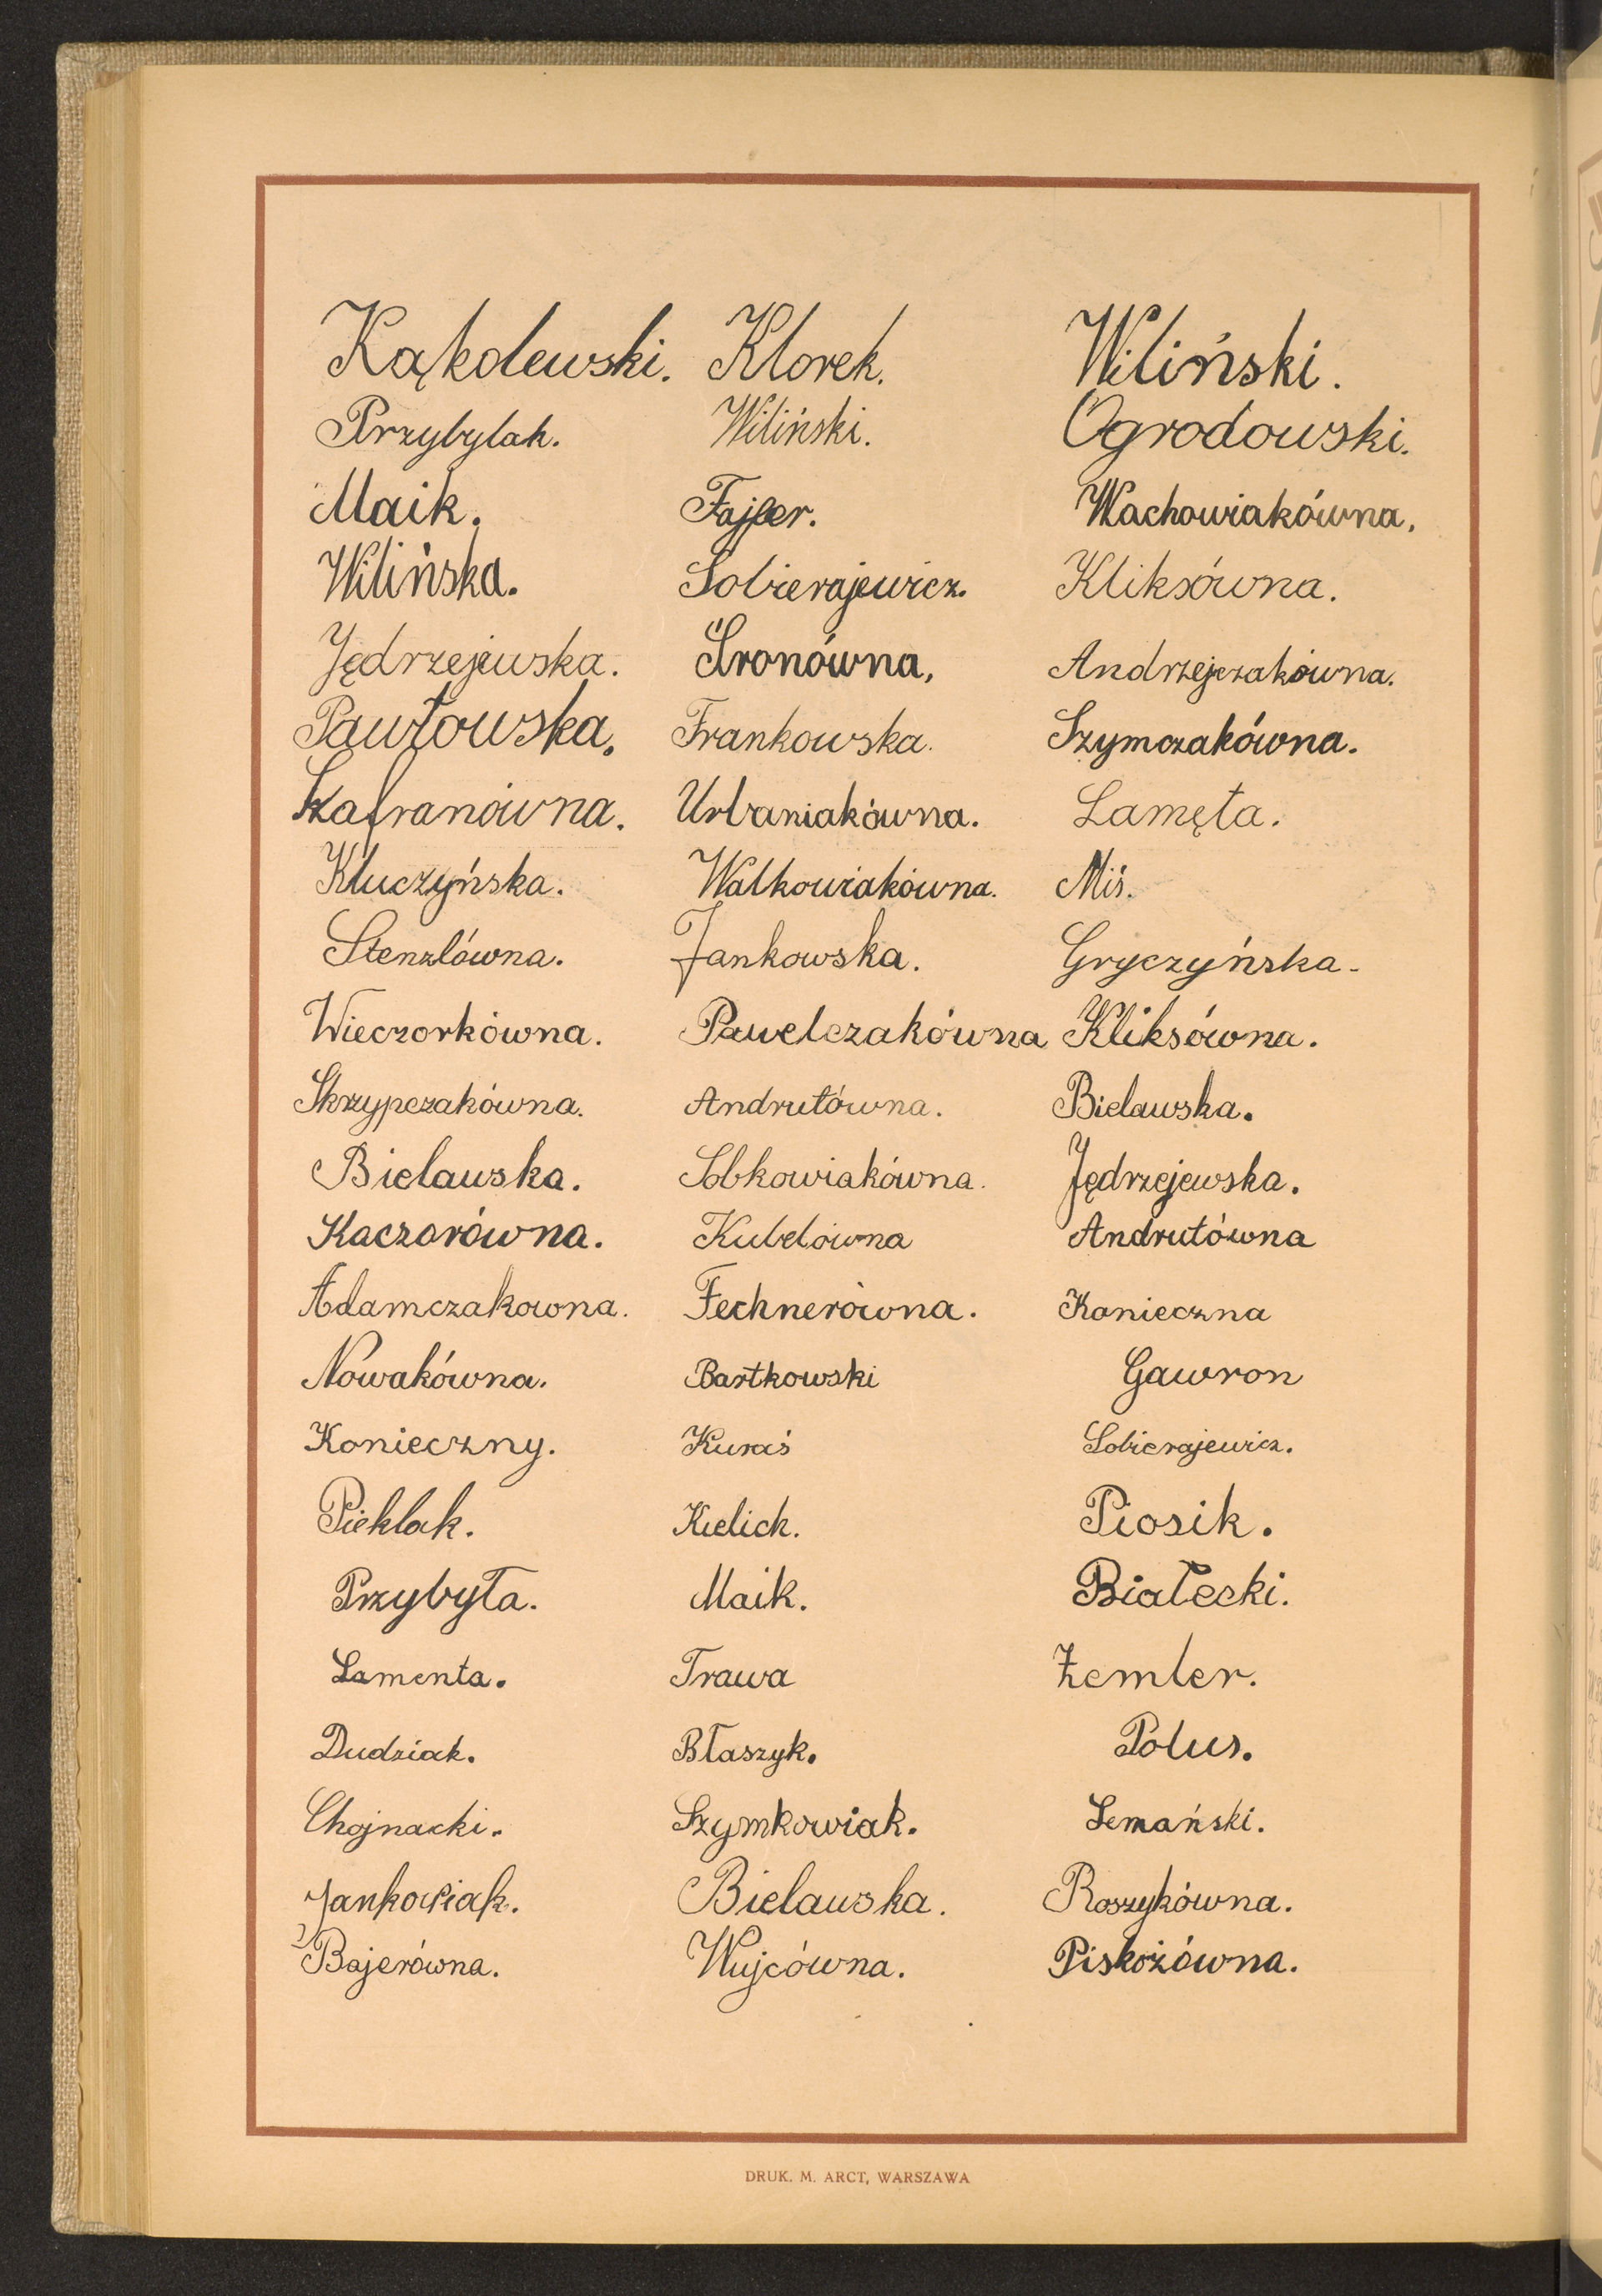 Kąkolewski. Klorek. Wiliński.
Przybylak. Wiliński. Ogrodowski.
Maik. Fajfer. Wachowiakówna.
Wilińska. Sobierajewicz. Kliksówna.
Jędrzejewska. Śronówna, Andrzejczakówna.
Pawłowska. Frankowska. Szymczakówna.
Szafranówna. Urbaniakówna. Lamęta.
Kluczyńska. Walkowiakówna. Miś.
Stenzlówna. Jankowska. Gryczyńska.
Wieczorkówna. Pawelczakówna Kliksówna.
Skrzypczakówna. Andrutówna. Bielawska.
Bielawska. Sobkowiakówna. Jędrzejewska.
Kaczorówna. Kubelówna Andrutówna
Adamczakowna. Fechnerówna. Konieczna
Nowakówna. Bartkowski Gawron
Konieczny. Kuraś Sobierajewicz.
Pieklak. Kielich. Piosik.
Przybyła. Maik. Białecki.
Lamenta. Trawa Żemler.
Dudziak. Błaszyk. Polus.
Chojnacki. Szymkowiak. Lemański.
Jankowiak. Bielawska. Roszykówna.
Bajerówna. Wujcówna. Piskożówna.
DRUK. M. ARCT, WARSZAWA